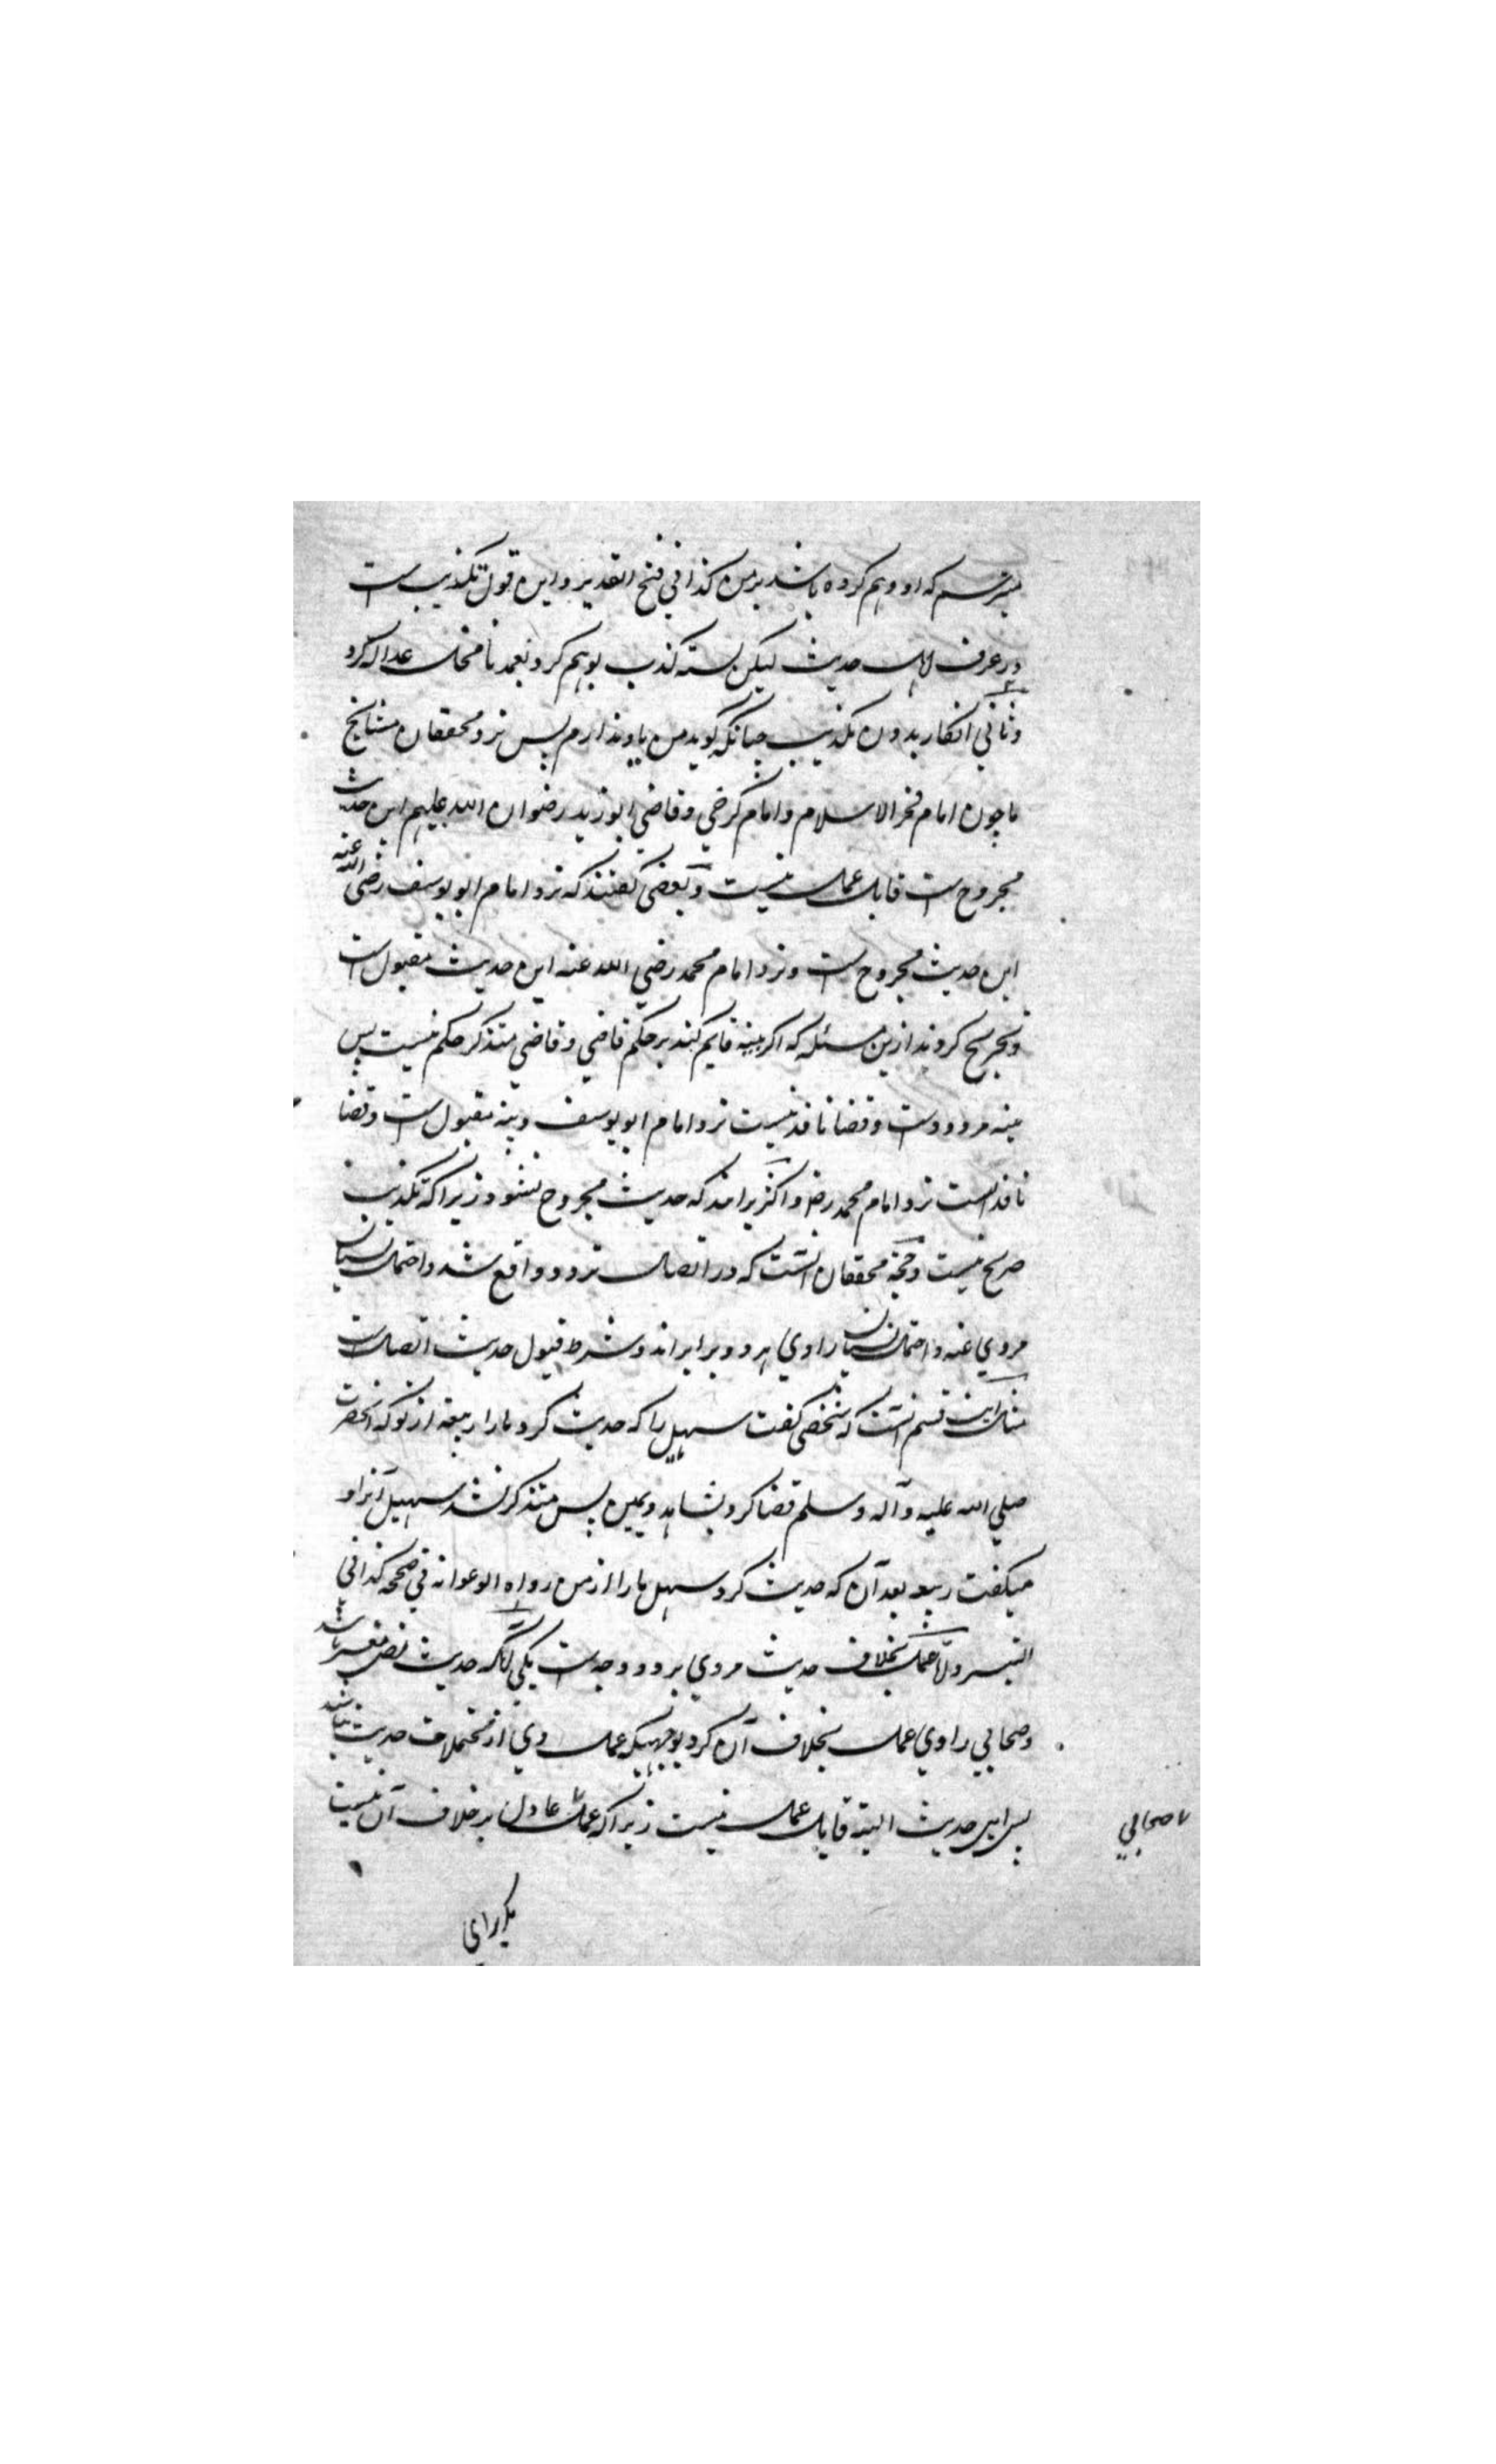 میترسم که او وهم کرده باشد بر من کذا فی فتح القدیر و این قول تکذیب است
در عرف اهل حدیث لیکن نسبة کذب بوهم کرد نعمد تا عدالة کرد
و ثانی انکار بدون تکذیب چنانکه گوید من یاد ندارم پس نزد محققان مشایخ
ما چون امام فخر الاسلام و امام کرخی و قاضی ابو زید رضوان الله علیهم این حدیث
مجروح است قابل عمل نیست و بعضی گفتند که نزد امام ابو یوسف رضی الله عنه
این حدیث مجروح است و نزد امام محمد رضی الله عنه این حدیث مقبول است
و تخریج کردند ازین مسئله که اگر بینه قایم کند بر حکم قاضی و قاضی متذکر حکم نیست پس
بینه مردود است و قضا نافذ نیست نزد امام ابو یوسف و بینه مقبول است و قضا
نافذ است نزد امام محمد رضه و اکثر برانند که حدیث مجروح نشود زیرا که تکذیب
صریح نیست و حجة محققان آنست که در اتصال تردد واقع شد و احتمال نسیان
مروی عنه و احتمال نسیان راوی هر دو برابر اند و شرط قبول حدیث اتصال است
مثال این قسم آنست که شخصی گفت سهیل را که حدیث کرد مارا ربیعه از تو که آنحضرت
صلی الله علیه و آله و سلم قضا کرد بشاهد و یمین پس متذکر نشد سهیل آنرا و
میگفت ربیعه بعد آن که حدیث کرد سهیل مارا از من رواه ابو عوانه فی صحیحه کذا فی
التیسیر عمل بخلاف حدیث مروی بر دو وجه است یکی آنکه حدیث نص مفسر باشد
و صحابی راوی عمل بخلاف آن کرد بوجهیکه عمل وی از محتملات حدیث نباشد
پس این حدیث البته قابل عمل نیست زیرا که عمل عادل بر خلاف آن نیست
صحابی
مگر برای